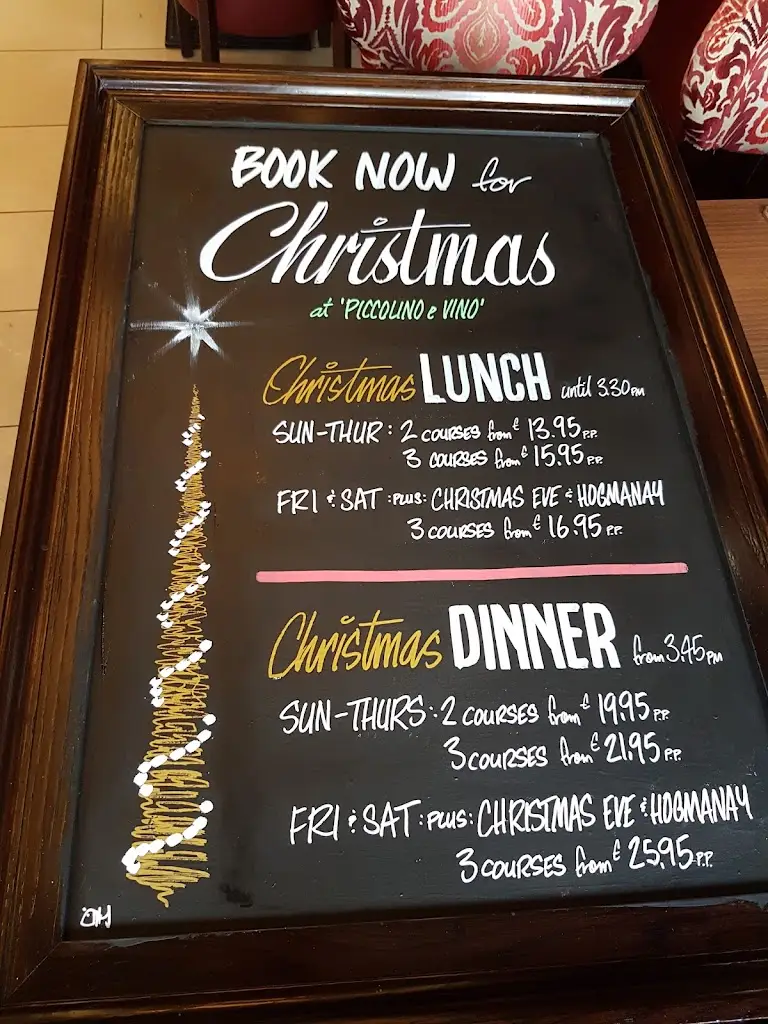 BOOK NOW for
Christmas
at 'PICCOLINO e VINO'
Christmas LUNCH until 3.30PM
SUN-THUR: 2 COURSES from £13.95 P.P.
3 COURSES from £15.95 P.P.
FRI & SAT :PLUS: CHRISTMAS EVE & HOGMANAY
3 COURSES from £16.95 P.P.
Christmas DINNER from 3.45PM
SUN-THURS: 2 COURSES from £19.95 P.P.
3 COURSES from £21.95 P.P.
FRI & SAT :PLUS: CHRISTMAS EVE & HOGMANAY
3 COURSES from £25.95 P.P.